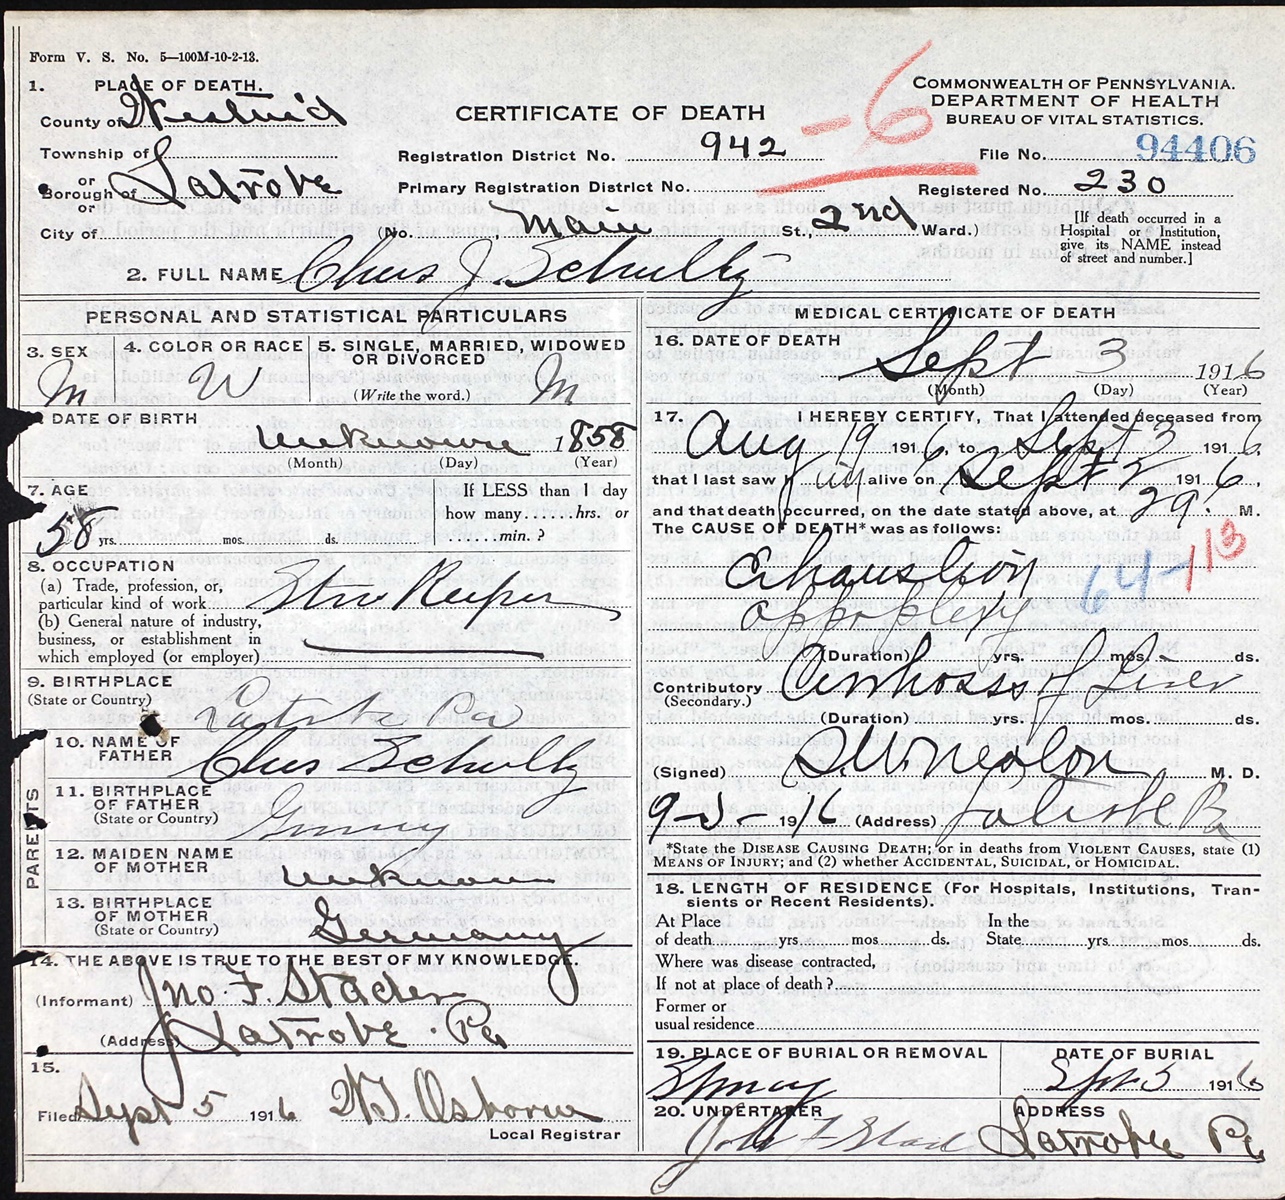 Form V. S. No. 5—100M-10-2-13.
1. PLACE OF DEATH.
County of Westm'd
Township of
or
Borough of Latrobe
or
City of
CERTIFICATE OF DEATH
Registration District No. 942
Primary Registration District No.
(No. , Main St., 2nd Ward.)
-6
COMMONWEALTH OF PENNSYLVANIA.
DEPARTMENT OF HEALTH
BUREAU OF VITAL STATISTICS.
File No. 94406
Registered No. 230
[If death occurred in a
Hospital or Institution,
give its NAME instead
of street and number.]
2. FULL NAME Chas J. Schultz
PERSONAL AND STATISTICAL PARTICULARS
3. SEX M
4. COLOR OR RACE W
5. SINGLE, MARRIED, WIDOWED
OR DIVORCED
(Write the word.) M
6. DATE OF BIRTH
unknown 1858
(Month) (Day) (Year)
7. AGE
58 yrs. mos. ds.
If LESS than 1 day
how many......hrs. or
......min.?
8. OCCUPATION
(a) Trade, profession, or,
particular kind of work
(b) General nature of industry,
business, or establishment in
which employed (or employer)
Keeper
9. BIRTHPLACE
(State or Country)
Latrobe Pa
PARENTS
10. NAME OF
FATHER Chas Schultz
11. BIRTHPLACE
OF FATHER
(State or Country) Germany
12. MAIDEN NAME
OF MOTHER unknown
13. BIRTHPLACE
OF MOTHER
(State or Country) Germany
14. THE ABOVE IS TRUE TO THE BEST OF MY KNOWLEDGE.
(Informant) Jno. F. Stader
(Address) Latrobe Pa
15.
Filed Sept 5 1916 Osborne
Local Registrar
MEDICAL CERTIFICATE OF DEATH
16. DATE OF DEATH
Sept 3 1916
(Month) (Day) (Year)
17. I HEREBY CERTIFY, That I attended deceased from
Aug 19 1916, to Sept 3 1916
that I last saw alive on Sept 2 1916,
and that death occurred, on the date stated above, at M.
The CAUSE OF DEATH* was as follows:
Exhaustion
appoplexy
64-113
(Duration) yrs. mos. ds.
Contributory Cirrhosis of Liver
(Secondary.)
(Duration) yrs. mos. ds.
(Signed) M. D.
9-5- 1916 (Address) Latrobe Pa
*State the DISEASE CAUSING DEATH; or in deaths from VIOLENT CAUSES, state (1)
MEANS OF INJURY; and (2) whether ACCIDENTAL, SUICIDAL, or HOMICIDAL.
18. LENGTH OF RESIDENCE (For Hospitals, Institutions, Tran-
sients or Recent Residents).
At Place In the
of death yrs. mos. ds. State yrs. mos. ds.
Where was disease contracted,
If not at place of death?
Former or
usual residence
19. PLACE OF BURIAL OR REMOVAL
DATE OF BURIAL
Sept 5 1916
20. UNDERTAKER
ADDRESS
John F Latrobe Pa